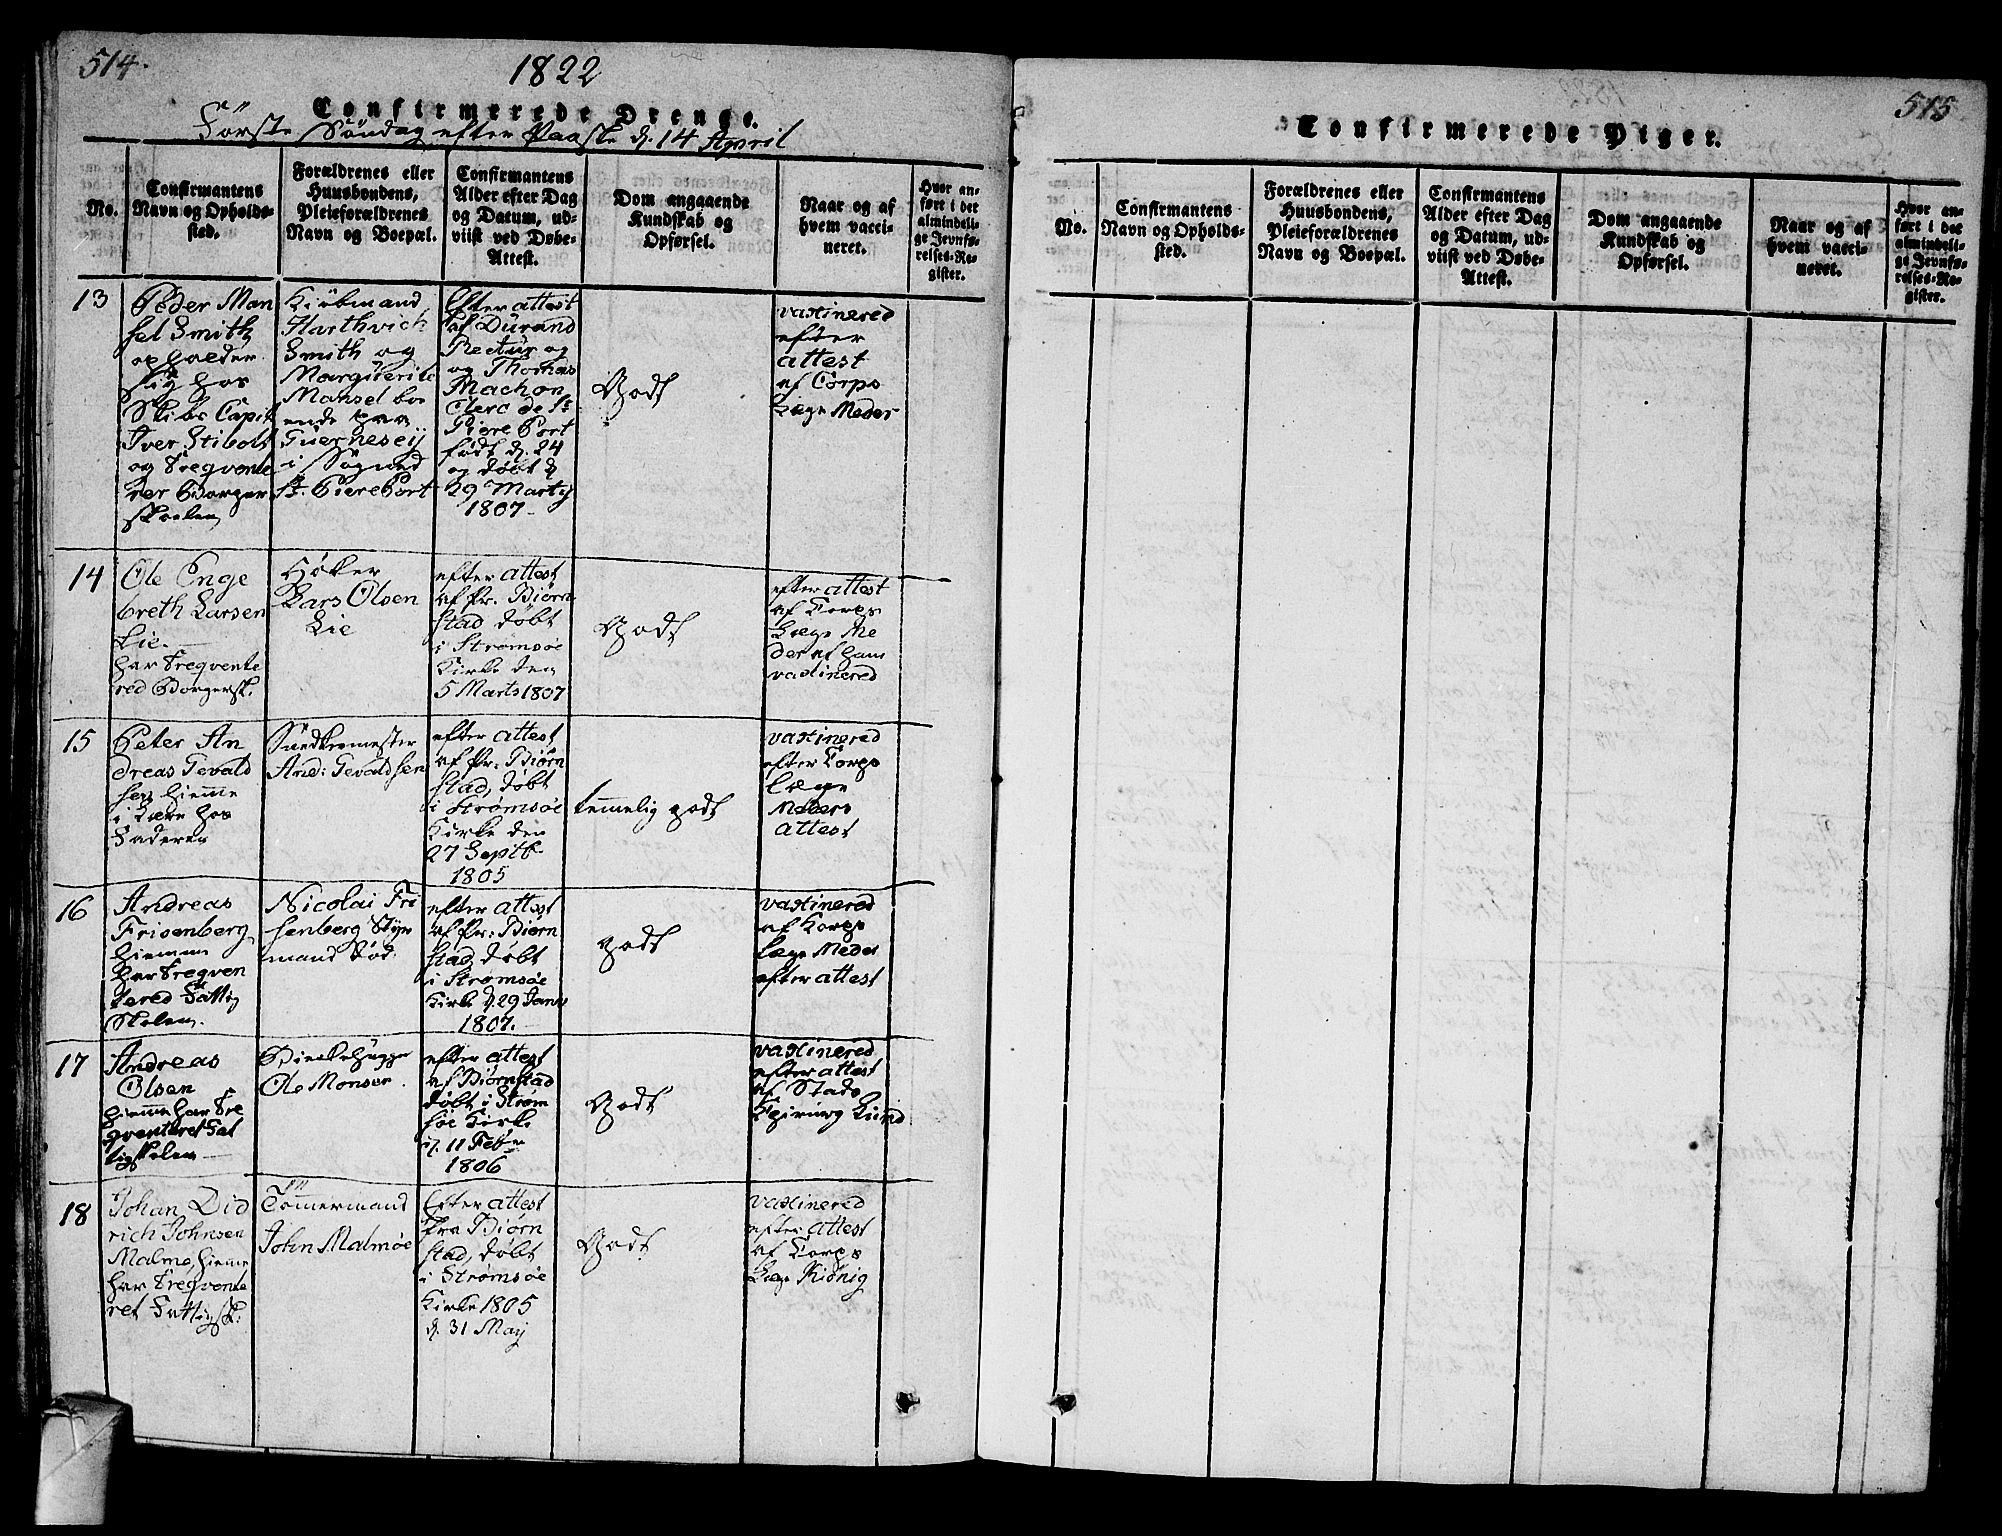 514.
1822
Confirmerede Drenge.
Første Søndag efter Paaske d. 14 April
No.
Confirmantens
Navn og Opholds-
sted.
Forældrenes eller
Huusbondens,
Pleieforældrenes
Navn og Boepæl.
Confirmantens
Alder efter Dag
og Datum, ud-
viist ved Døbe-
Attest.
Dom angaaende
Kundskab og
Opførsel.
Naar og af
hvem vacci-
neret.
Hvor an-
ført i det
almindeli-
ge Jevnfø-
relses-Re-
gister.
13
Peder Man
sel Smith
opholder
sig hos
Skibs Capit
Iver Stibolt
og freqvente
rer Borger
skolen
Kiøbmand
Harthvich
Smith og
Margúerite
Mansel bo
ende paa
Gúerneseÿ
i Sognet
St. Piere Port
Efter attest
af Dúrand
Rectúr og
og Thomas
Machon
Clerc de St
Piere Port
født d. 24
og døbt d
29 Martÿ
1807
Godt
vaxinered
efter
attest
af Corps
Læge Meder
14
Ole Enge
breth Larsen
Lie.
har freqvente
red Borgersk.
Høker
Lars Olsen
Lie
efter attest
af Pr. Biørn
stad døbt
i Strømsøe
Kirke den
5 Marts 1807
Godt
efter attest
af Corps
Læge Me
der af ham
vaxinered
15
Peter An
dreas Gevald
sen hiemme
i Lære hos
Faderen
Snedkermester
And: Gevaldsen
efter attest
af Pr: Biørn
stad, døbt
i Strømsøe
Kirke den
27 Septb.
1805
temmelig godt
vaxinered
efter Corps
læge
Meders
attest
16
Andreas
Frisenberg,
hiemme
har freqven
tered Fattig
Skolen.
Nicolai Fri
senberg Styr
mand død.
efter attest
af Pr: Biørn
stad, døbt
i Strømsøe
Kirke d. 29 Janu
1807.
godt
vaxinered
af Korps
læge Meder
efter attest
17
Andreas
Olsen
hiemme har fre
qventeret Fat
tigskolen
Ole Monsen.
efter attest
af Biørnstad
døbt i Strøm
søe Kirke
d. 11 Febr
1806
Godt
vaxinered
efter attest
af Stads
Lund
18
Johan Did
rich Johnsen
Malmø, hieme
har freqvente
ret Fattigsk:
Tømmermand
John Malmøe
Efter attest
fra Biørn
stad, døbt
i Strømsøe
Kirke 1805
d. 31 Maÿ
Godt
vaxinered
efter attest
af Corps
Læge Kiönig
515
Confirmerede Piger.
No.
Confirmantens
Navn og Opholds-
sted.
Forældrenes eller
Huusbondens,
Pleieforældrenes
Navn og Boepæl.
Confirmantens
Alder efter Dag
og Datum, ud-
viist ved Døbe-
Attest.
Dom angaaende
Kundskab og
Opførsel.
Naar og af
hvem vacci-
neret.
Hvor an-
ført i det
almindeli-
ge Jevnfø-
relses-Re-
gister.